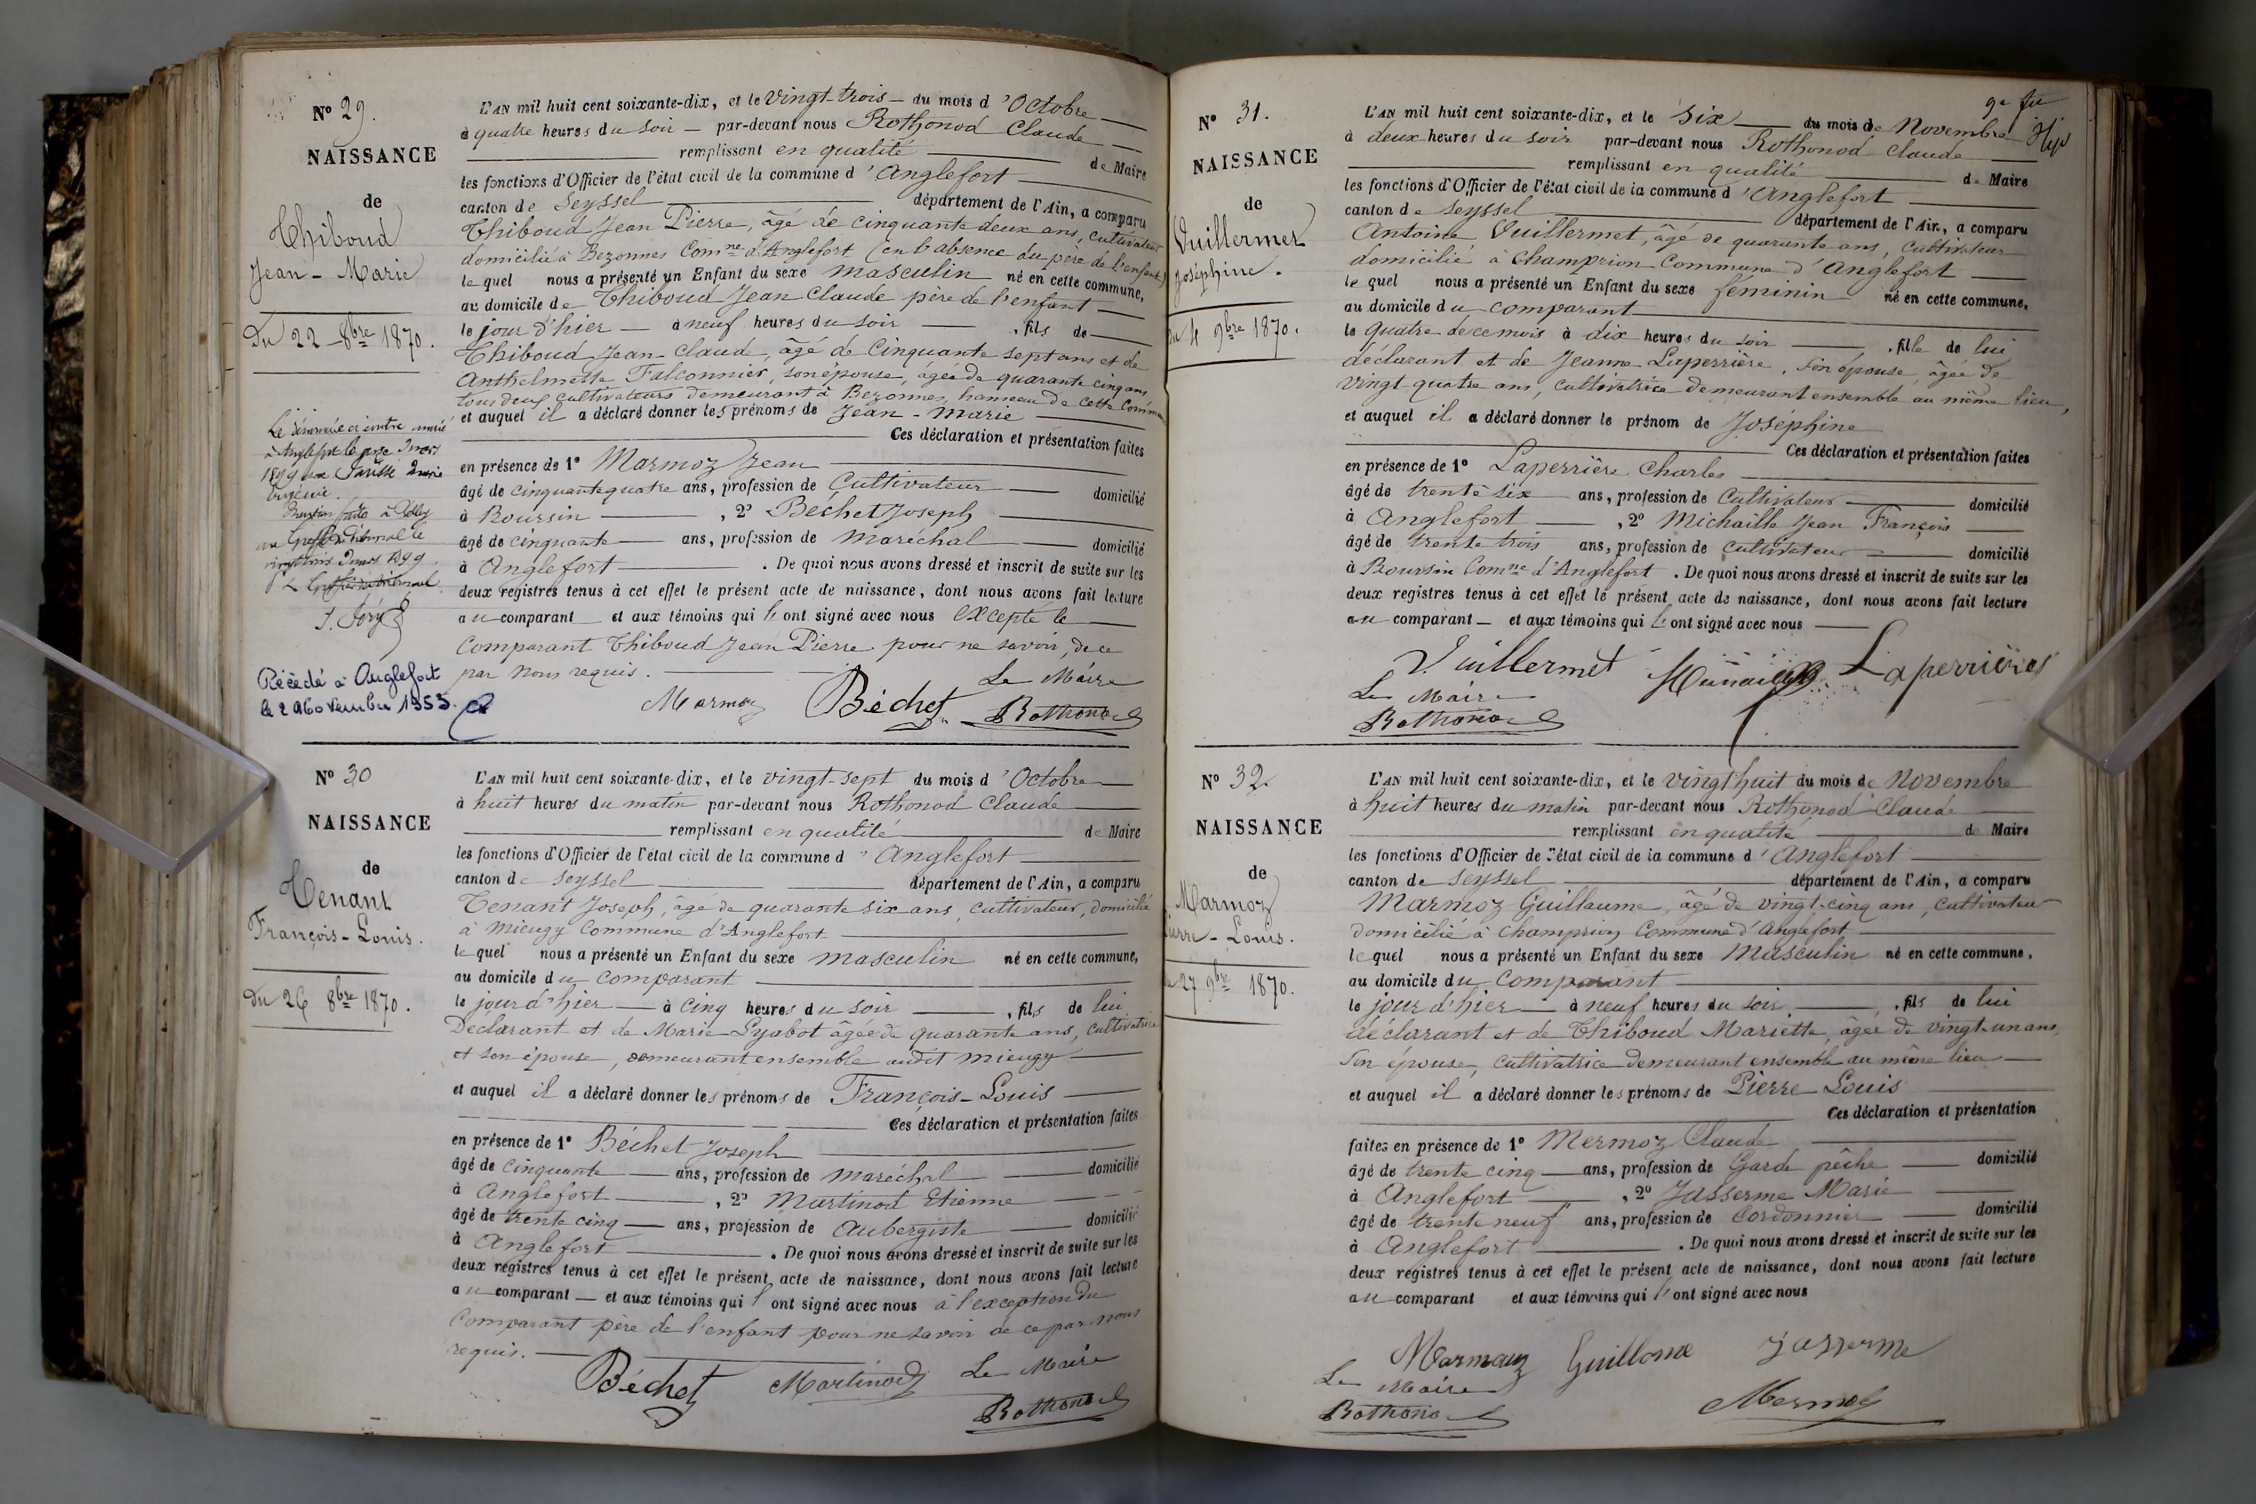 N° 29.
NAISSANCE
de
Thiboud
Jean-Marie
Du 22 8bre 1870.
Le dénommé ci contre marié
à Anglefort le onze Mars
1899 avec
Mention faite à Belley
au Greffe du tribunal le
vingt trois Mars 1899.
Décédé à Anglefort
le 2 Novembre 1953.
L'AN mil huit cent soixante-dix, et le Vingt-trois du mois d'Octobre
à quatre heures du Soir par-devant nous Rothonod Claude
remplissant en qualité de Maire
les fonctions d'Officier de l'état civil de la commune d'Anglefort
canton de Seyssel département de l'Ain, a comparu
Thiboud Jean Pierre, âgé de cinquante deux ans, cultivateur
domicilié à Bezonnes Comne d'Anglefort (en l'absence du père de l'enfant)
le quel nous a présenté un Enfant du sexe masculin né en cette commune,
au domicile de Thiboud Jean Claude père de l'enfant
le jour d'hier à neuf heures du soir , fils de
Thiboud Jean-Claude, âgé de Cinquante sept ans et de
Anthelmette Falconnier, son épouse, âgée de quarante cinq ans,
tous deux cultivateurs demeurant à Bezonnes, hameau de cette Commune
et auquel il a déclaré donner les prénoms de Jean-Marie
Ces déclaration et présentation faites
en présence de 1° Marmoz Jean
âgé de cinquante quatre ans, profession de Cultivateur domicilié
à Boursin , 2° Béchet Joseph
âgé de cinquante ans, profession de maréchal domicilié
à Anglefort . De quoi nous avons dressé et inscrit de suite sur les
deux registres tenus à cet effet le présent acte de naissance, dont nous avons fait lecture
au comparant et aux témoins qui l'ont signé avec nous excepté le
Comparant Thiboud Jean Pierre pour ne savoir, de ce
par nous requis.
Le Maire
Marmoz Béchet Rothonod
N° 30
NAISSANCE
de
Tenant
François-Louis.
Du 26 8bre 1870.
L'AN mil huit cent soixante-dix, et le vingt-sept du mois d'Octobre
à huit heures du matin par-devant nous Rothonod Claude
remplissant en qualité de Maire
les fonctions d'Officier de l'état civil de la commune d'Anglefort
canton de Seyssel département de l'Ain, a comparu
Tenant Joseph, âgé de quarante six ans, cultivateur, domicilié
à Mieugy Commune d'Anglefort
le quel nous a présenté un Enfant du sexe masculin né en cette commune,
au domicile du comparant
le jour d'hier à cinq heures du soir , fils de lui
Déclarant et de Marie Lyabot âgée de quarante ans, cultivatrice
et son épouse, demeurant ensemble audit Mieugy
et auquel il a déclaré donner les prénoms de François-Louis
Ces déclaration et présentation faites
en présence de 1° Béchet Joseph
âgé de cinquante ans, profession de maréchal domicilié
à Anglefort , 2° Martinod Etienne
âgé de trente cinq ans, profession de Aubergiste domicilié
à Anglefort . De quoi nous avons dressé et inscrit de suite sur les
deux registres tenus à cet effet le présent acte de naissance, dont nous avons fait lecture
au comparant et aux témoins qui l'ont signé avec nous à l'exception du
Comparant père de l'enfant pour ne savoir de ce par nous
requis.
Béchet Martinod Le Maire
Rothonod
N° 31.
NAISSANCE
de
Vuillermet
Joséphine.
du 4 9bre 1870.
L'AN mil huit cent soixante-dix, et le Six du mois de Novembre
à deux heures du soir par-devant nous Rothonod Claude
remplissant en qualité de Maire
les fonctions d'Officier de l'état civil de la commune d'Anglefort
canton de Seyssel département de l'Ain, a comparu
Antoine Vuillermet, âgé de quarante ans, cultivateur
domicilié à Champrion Commune d'Anglefort
le quel nous a présenté un Enfant du sexe féminin né en cette commune,
au domicile du comparant
le quatre de ce mois à dix heures du soir , fille de lui
déclarant et de Jeanne Laperrière, son épouse, âgée de
vingt quatre ans, cultivatrice demeurant ensemble au même lieu,
et auquel il a déclaré donner le prénom de Joséphine
Ces déclaration et présentation faites
en présence de 1° Laperrière Charles
âgé de trente six ans, profession de Cultivateur domicilié
à Anglefort , 2° Michaille Jean François
âgé de trente trois ans, profession de cultivateur domicilié
à Boursin Comne d'Anglefort . De quoi nous avons dressé et inscrit de suite sur les
deux registres tenus à cet effet le présent acte de naissance, dont nous avons fait lecture
au comparant et aux témoins qui l'ont signé avec nous
Vuillermet Laperrière
Le Maire
Rothonod
N° 32.
NAISSANCE
de
Marmoz
Pierre-Louis.
du 27 9bre 1870.
L'AN mil huit cent soixante-dix, et le vingt huit du mois de Novembre
à huit heures du matin par-devant nous Rothonod Claude
remplissant en qualité de Maire
les fonctions d'Officier de l'état civil de la commune d'Anglefort
canton de Seyssel département de l'Ain, a comparu
Marmoz Guillaume, âgé de vingt-cinq ans, cultivateur
domicilié à Champrion Commune d'Anglefort
le quel nous a présenté un Enfant du sexe Masculin né en cette commune,
au domicile du Comparant
le jour d'hier à neuf heures du soir , fils de lui
déclarant et de Thiboud Mariette, âgée de vingt-un ans,
son épouse, cultivatrice demeurant ensemble au même lieu
et auquel il a déclaré donner les prénoms de Pierre Louis
Ces déclaration et présentation
faites en présence de 1° Mermoz Claude
âgé de trente cinq ans, profession de Garde pêche domicilié
à Anglefort , 2° Jasserme Marie
âgé de trente neuf ans, profession de Cordonnier domicilié
à Anglefort . De quoi nous avons dressé et inscrit de suite sur les
deux registres tenus à cet effet le présent acte de naissance, dont nous avons fait lecture
au comparant et aux témoins qui l'ont signé avec nous
Marmouz Guillome Jasserme
Le Maire
Rothonod Mermoz